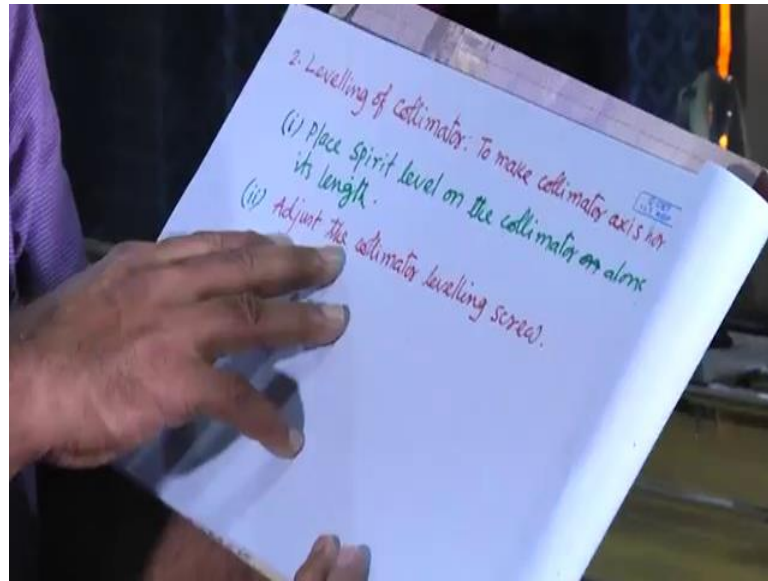 2. Levelling of collimator: To make collimator axis hor
(i) Place spirit level on the collimator on along
its length.
(ii) Adjust the collimator levelling screw.